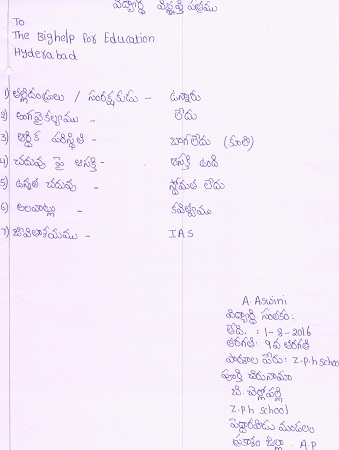 విద్యార్థి విజ్ఞప్తి పత్రము
To
The Bighelp for Education
Hyderabad
1) తల్లిదండ్రులు / సంరక్షకుడు - ఉన్నారు
2) అంగవైకల్యము - లేదు
3) ఆర్థిక పరిస్థితి - బాగలేదు (కూలి)
4) చదువు పై ఆసక్తి - ఆసక్తి ఉంది
5) ఉన్నత చదువు - స్థోమత లేదు
6) అలవాట్లు - కవిత్వము
7) జీవితాశయము - IAS
A. Aswini
విద్యార్థి సంతకం:
తేది. : 1-8-2016
తరగతి: 9వ తరగతి
పాఠశాల పేరు: Z.p.h school
పూర్తి చిరునామా
బి. చెర్లోపల్లి
Z.p.h school
పెద్దారవీడు మండలం
ప్రకాశం జిల్లా : A.P